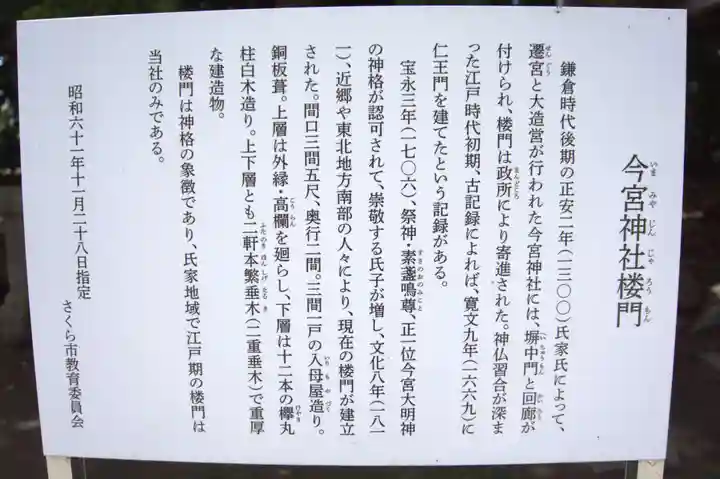 今宮神社楼門
いまみやじんじゃろうもん
鎌倉時代後期の正安二年（一三〇〇）氏家氏によって、
遷宮と大造営が行われた今宮神社には、塀中門と回廊が
付けられ、楼門は政所により寄進された。神仏習合が深ま
った江戸時代初期、古記録によれば、寛文九年（一六六九）に
仁王門を建てたという記録がある。
宝永三年（一七〇六）、祭神・素盞鳴尊、正一位今宮大明神
の神格が認可されて、崇敬する氏子が増し、文化八年（一八一
一）、近郷や東北地方南部の人々により、現在の楼門が建立
された。間口三間五尺、奥行二間。三間一戸の入母屋造り。
銅板葺。上層は外縁・高欄を廻らし、下層は十二本の欅丸
柱白木造り。上下層とも二軒本繁垂木（二重垂木）で重厚
な建造物。
楼門は神格の象徴であり、氏家地域で江戸期の楼門は
当社のみである。
昭和六十一年十一月二十八日指定
さくら市教育委員会